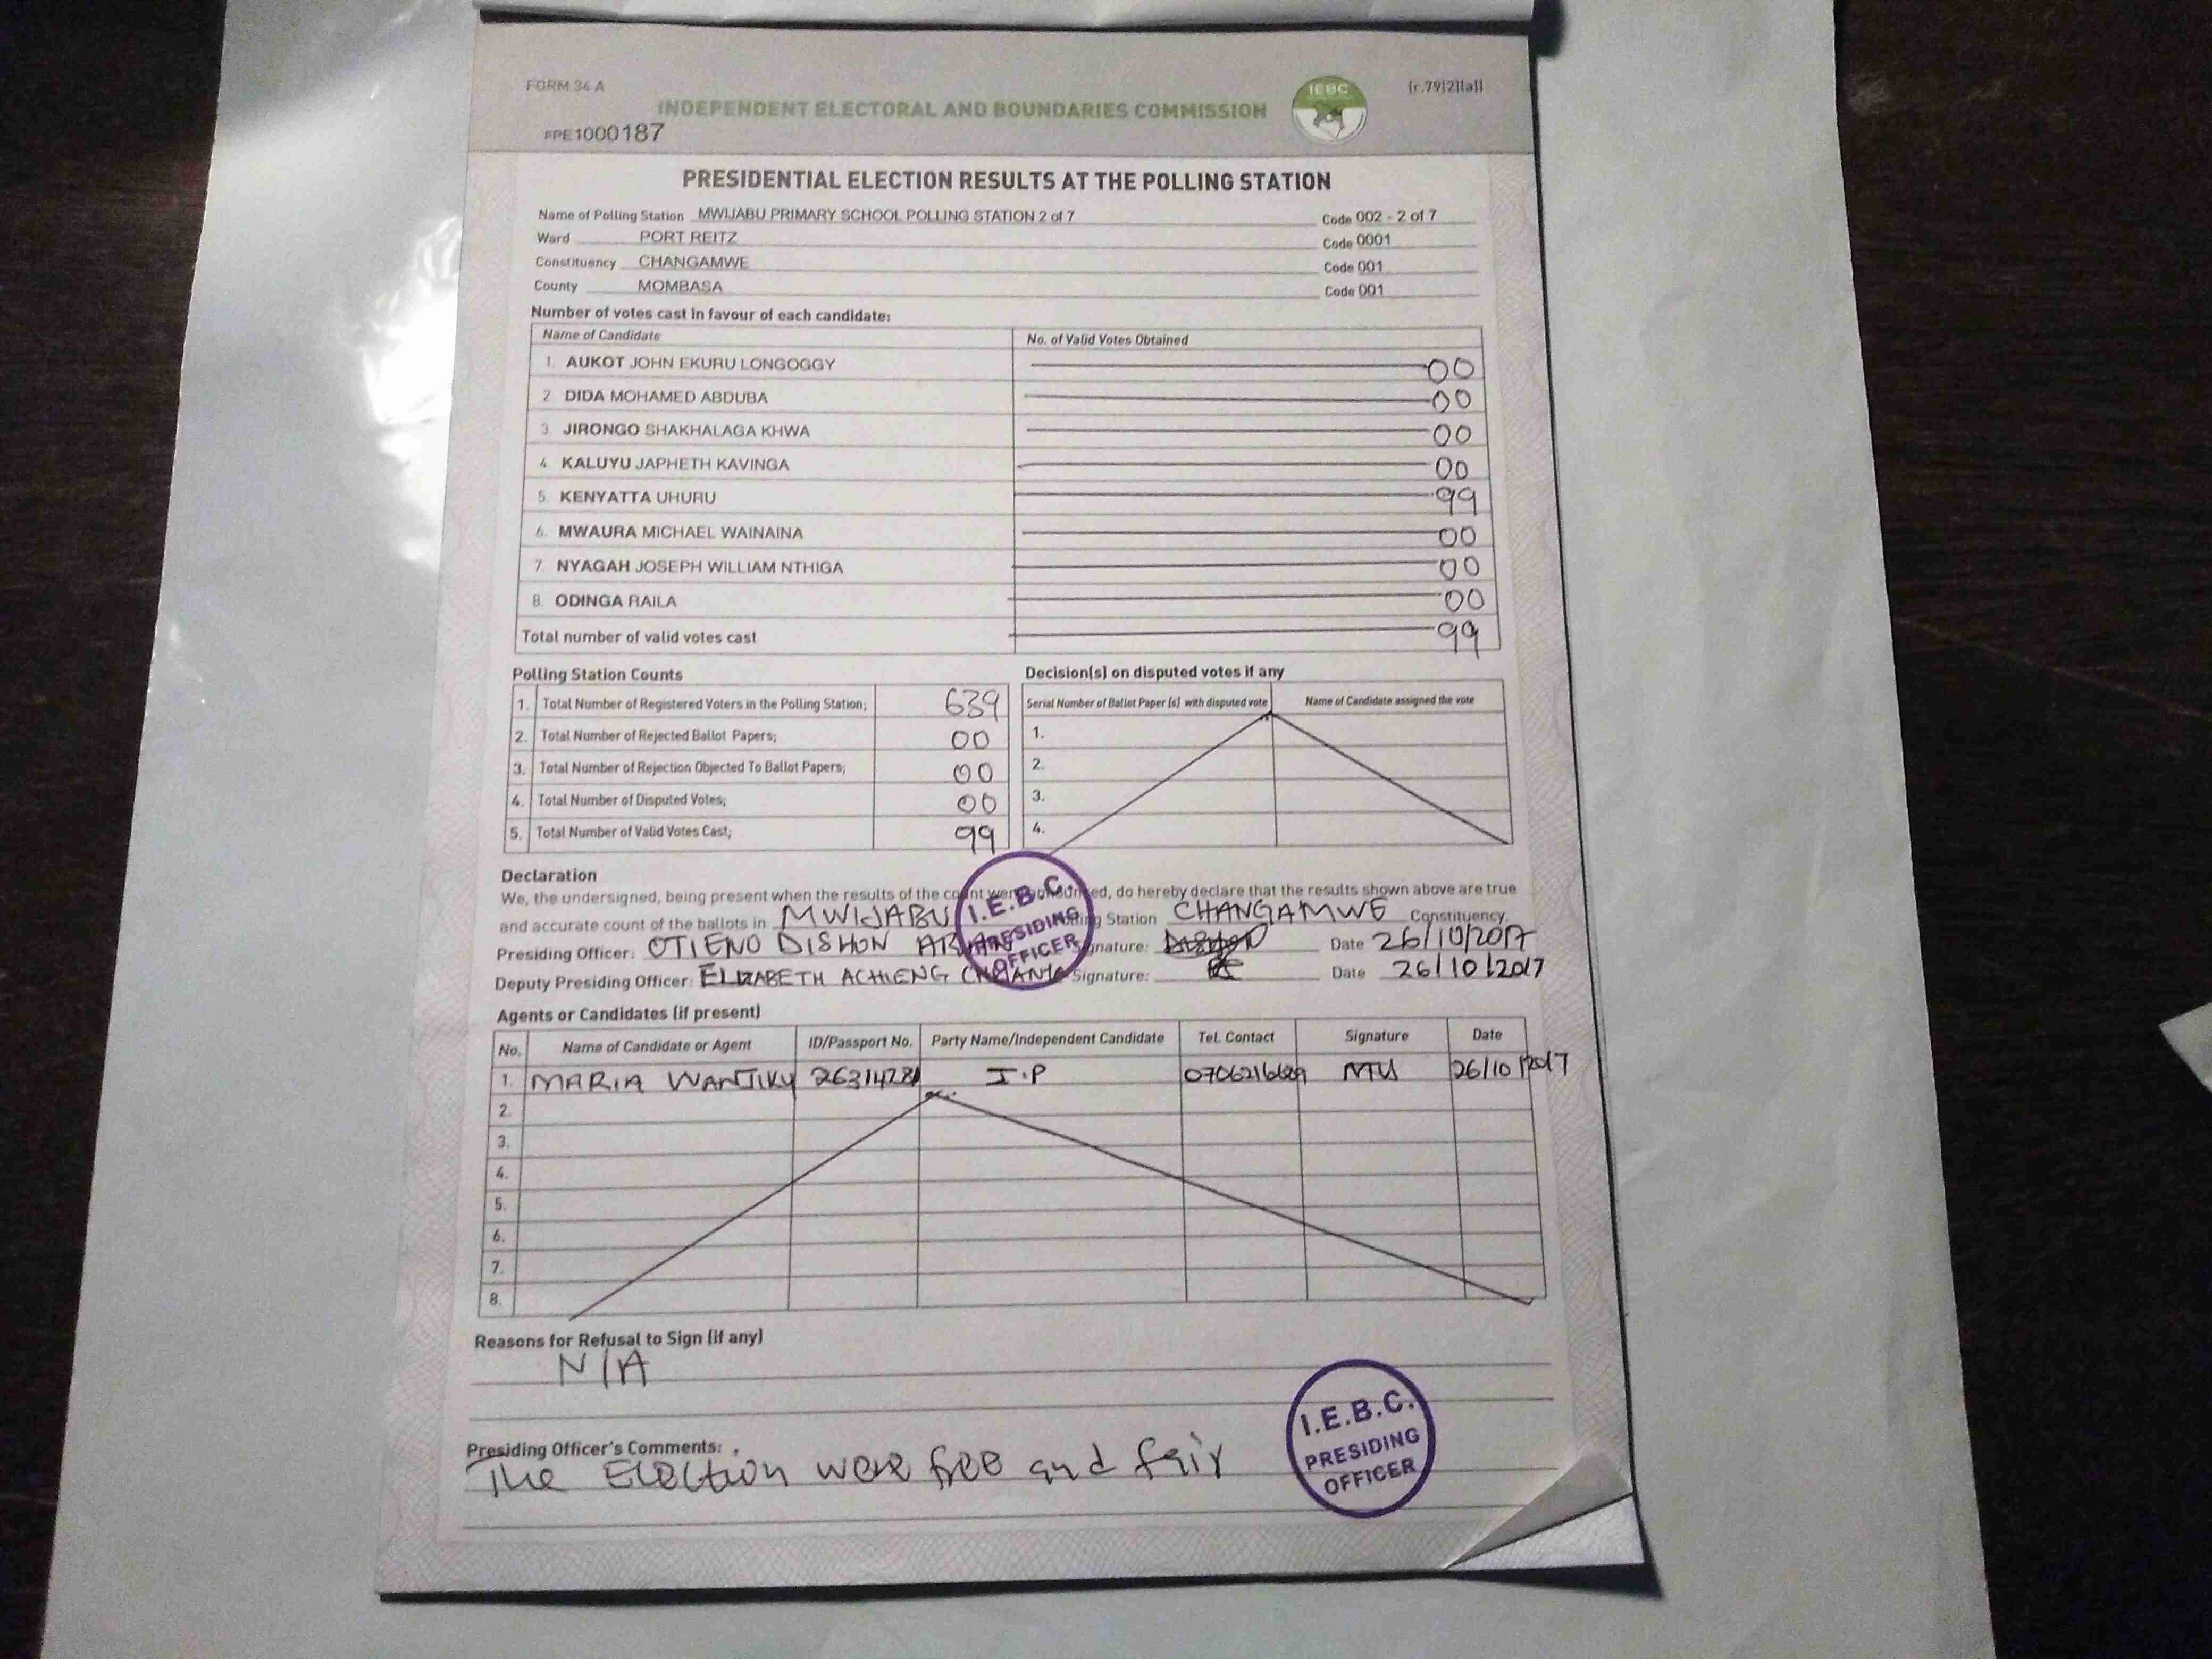 FORM 34 A
(r.79(2)(a))
IEBC
INDEPENDENT ELECTORAL AND BOUNDARIES COMMISSION
PPE1000187
PRESIDENTIAL ELECTION RESULTS AT THE POLLING STATION
Name of Polling Station MWIJABU PRIMARY SCHOOL POLLING STATION 2 of 7 Code 002 - 2 of 7
Ward PORT REITZ Code 0001
Constituency CHANGAMWE Code 001
County MOMBASA Code 001
Number of votes cast in favour of each candidate:
Name of Candidate No. of Valid Votes Obtained
1. AUKOT JOHN EKURU LONGOGGY 00
2. DIDA MOHAMED ABDUBA 00
3. JIRONGO SHAKHALAGA KHWA 00
4. KALUYU JAPHETH KAVINGA 00
5. KENYATTA UHURU 99
6. MWAURA MICHAEL WAINAINA 00
7. NYAGAH JOSEPH WILLIAM NTHIGA 00
8. ODINGA RAILA 00
Total number of valid votes cast 99
Polling Station Counts
1. Total Number of Registered Voters in the Polling Station; 639
2. Total Number of Rejected Ballot Papers; 00
3. Total Number of Rejection Objected To Ballot Papers; 00
4. Total Number of Disputed Votes; 00
5. Total Number of Valid Votes Cast; 99
Decision(s) on disputed votes if any
Serial Number of Ballot Paper (s) with disputed vote Name of Candidate assigned the vote
1.
2.
3.
4.
Declaration
We, the undersigned, being present when the results of the count were announced, do hereby declare that the results shown above are true
and accurate count of the ballots in MWIJABU Polling Station CHANGAMWE Constituency.
Presiding Officer: OTIENO DISHON Signature: Date 26/10/2017
Deputy Presiding Officer: ELIZABETH ACHIENG Signature: Date 26/10/2017
I.E.B.C.
PRESIDING
OFFICER
Agents or Candidates (if present)
No. Name of Candidate or Agent ID/Passport No. Party Name/Independent Candidate Tel. Contact Signature Date
1. MARIA WANJIKU J.P 26/10/2017
2.
3.
4.
5.
6.
7.
8.
Reasons for Refusal to Sign (if any)
N/A
Presiding Officer's Comments:
The Election were free and fair
I.E.B.C.
PRESIDING
OFFICER